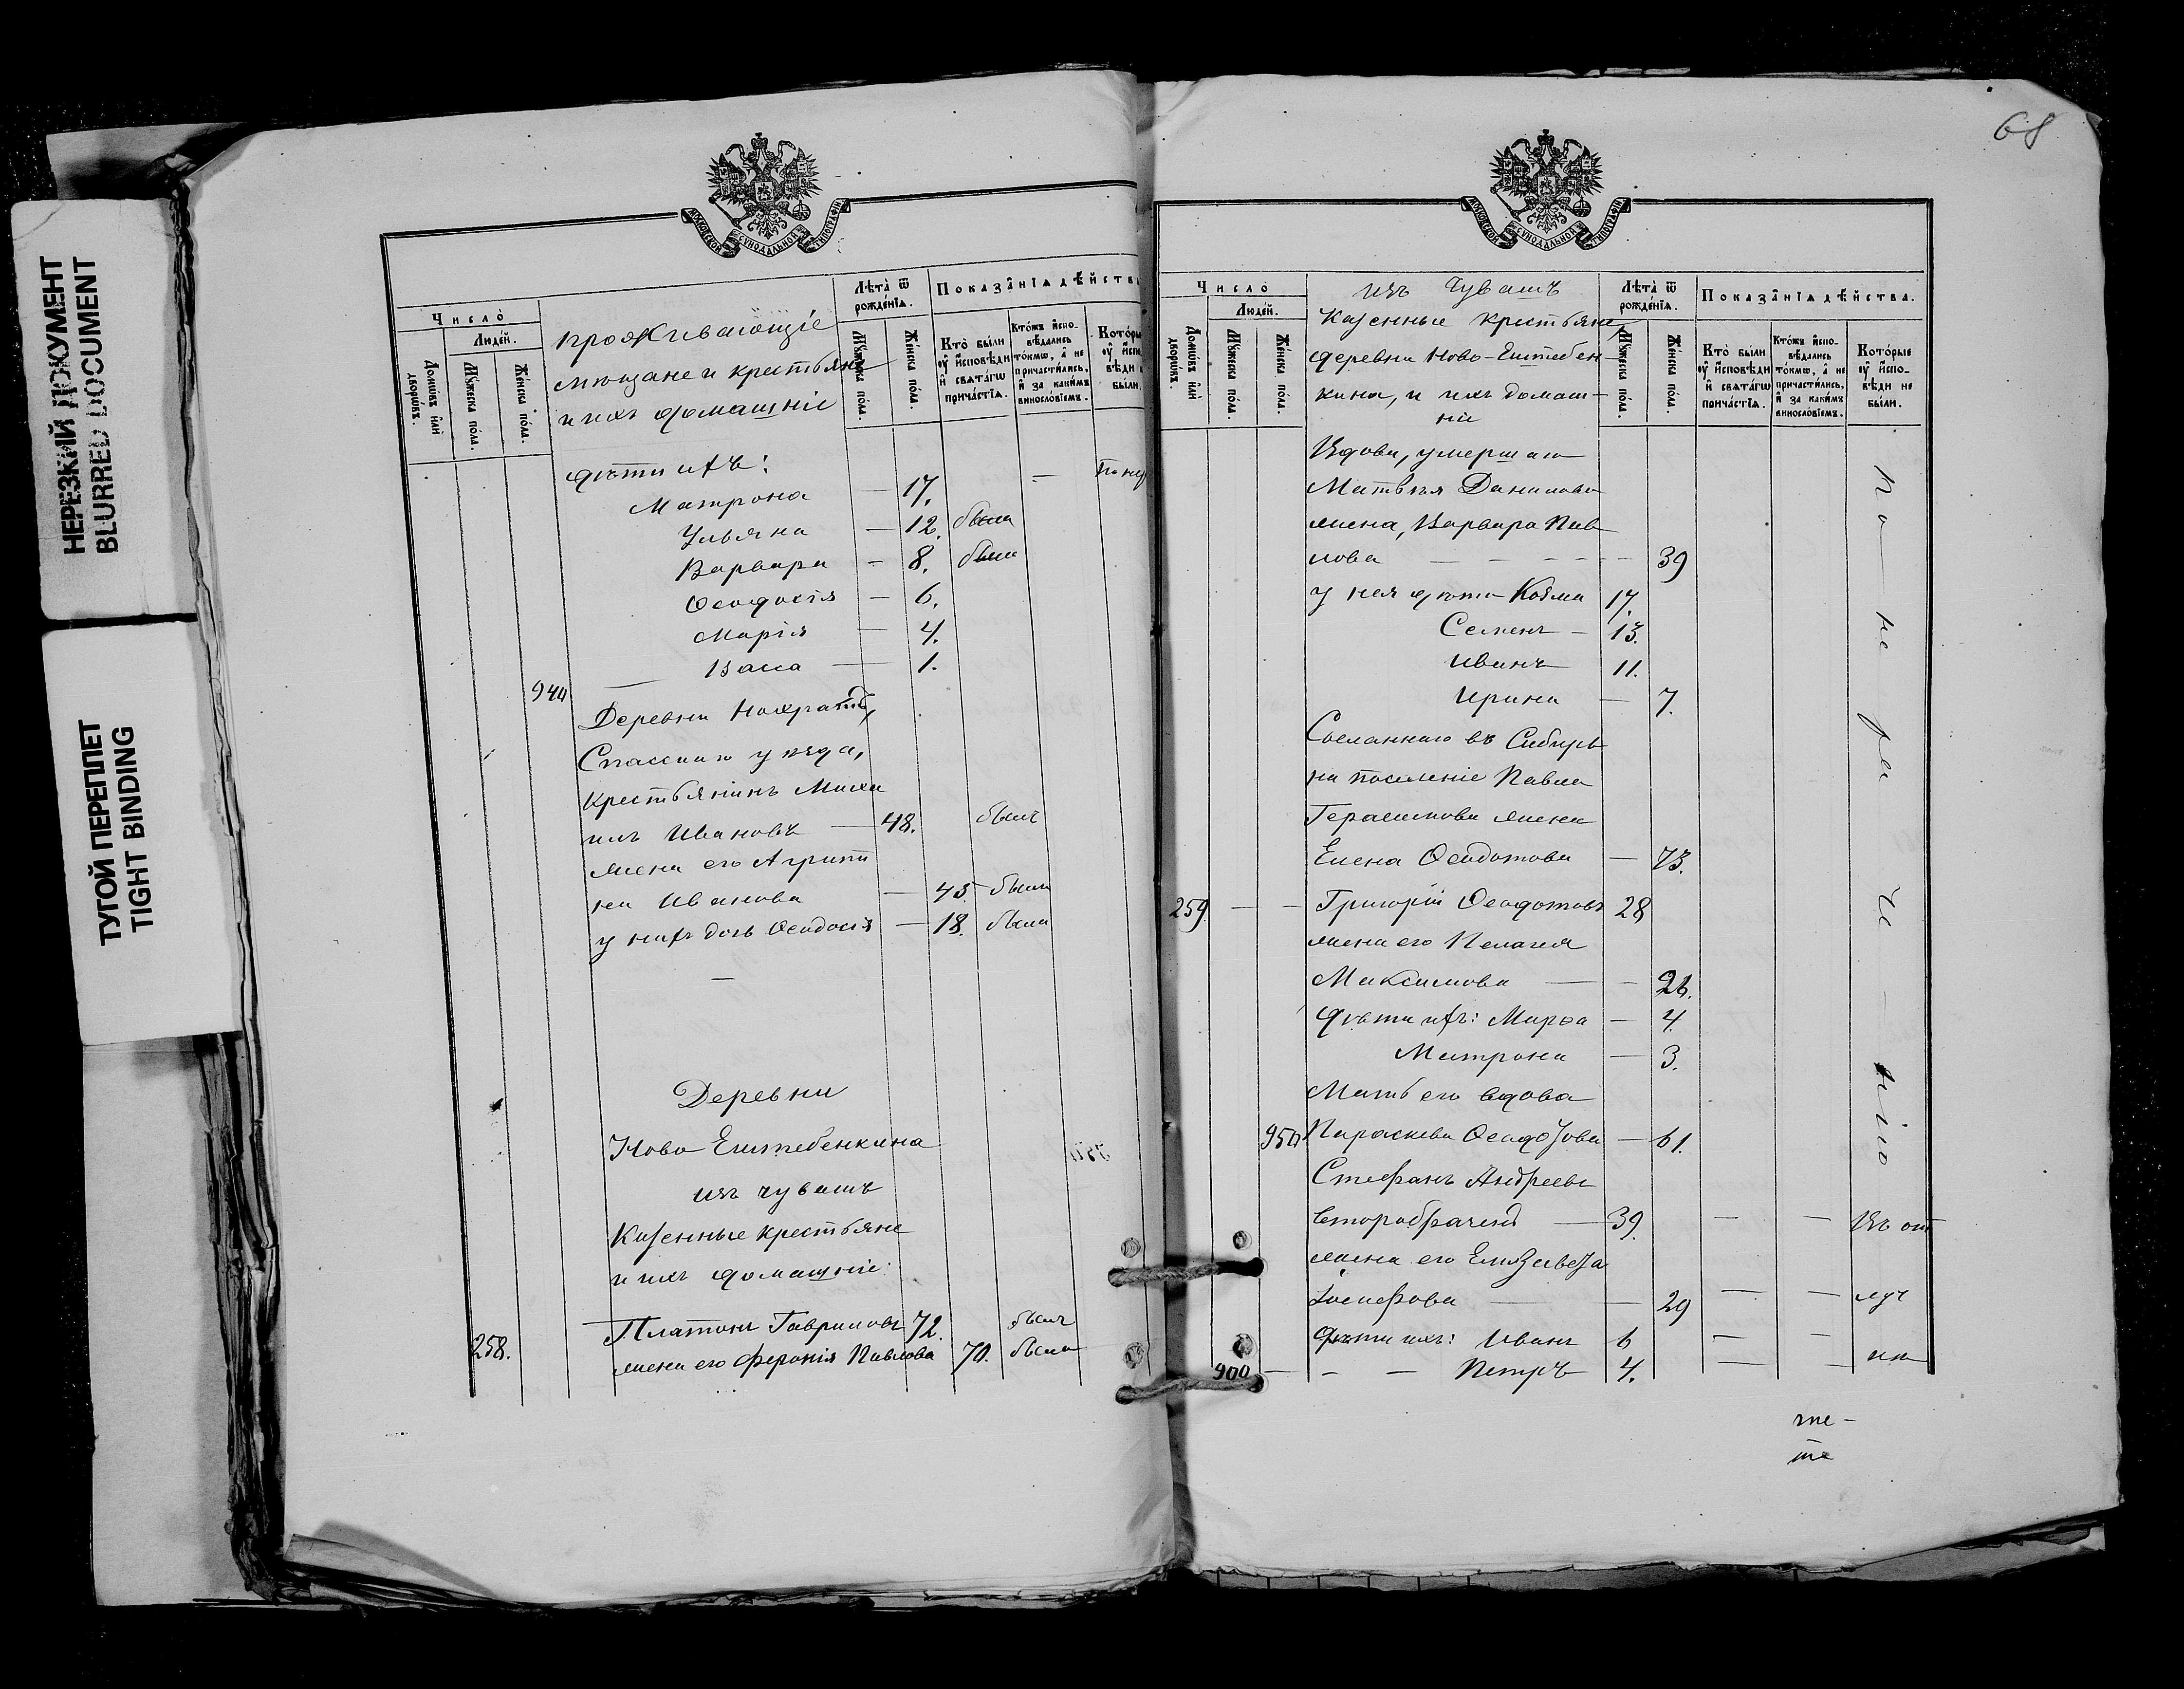 НЕРЕЗКИЙ ДОКУМЕНТ
BLURRED DOCUMENT
ТУГОЙ ПЕРЕПЛЕТ
TIGHT BINDING
МОСКОВСКОЙ СѴНОДАЛЬНОЙ ТИПОГРАФІИ
Число̀
Людей.
Домѡвъ или дворѡвъ.
Мꙋжеска пола.
Женска пола.
проживающіе
мѣщане и крестьяне
и ихъ домашніе
Лѣта̀ ѿ рожденїѧ.
Мꙋжеска пола.
Женска пола.
Показанїѧ дѣйства
Кто̀ были оу҆ исповѣди и свѧтагѡ причастїѧ.
Ктожъ исповѣдались токмѡ, а не причастились, и за какимъ винословїемъ.
дѣти ихъ:
Матрона — 17.
Ульяна — 12. была
Варвара — 8. была
Ѳеодосія — 6.
Марія — 4.
Васса — 1.
940
Деревни
Спасскаго уѣзда,
крестьянинъ Миха
илъ Ивановъ — 48. былъ
жена его Агрипи
на Иванова — 45. была
у нихъ дочь Ѳеодосія — 18. была
Деревни
Ново Ештебенкина
изъ чувашъ
Казенные крестьяне
и ихъ домашніе:
258. Платонъ Гавриловъ 72. былъ
жена его Февронія Павлова 70. была
68
МОСКОВСКОЙ СѴНОДАЛЬНОЙ ТИПОГРАФІИ
Число̀
Людей.
Домѡвъ или дворѡвъ.
Мꙋжеска пола.
Женска пола.
изъ Чувашъ
Казенные крестьяне
деревни Ново-Ештебен-
кина, и ихъ домаш-
ніе
Лѣта̀ ѿ рожденїѧ.
Мꙋжеска пола.
Женска пола.
Показанїѧ дѣйства.
Кто̀ были оу҆ исповѣди и свѧтагѡ причастїѧ.
Ктожъ исповѣдались токмѡ, а не причастились, и за какимъ винословїемъ.
Которые оу҆ исповѣди не были.
Вдова, умершаго
Матвѣя Данилова
жена, Варвара Пав
лова — 39
у нея дѣти Козма 17.
Семенъ — 13.
Иванъ 11.
Ирина — 7.
Сосланнаго въ Сибирь
на поселеніе Павла
Герасимова жена
Елена Ѳеодотова — 73.
259. — — Григорій Ѳеодотовъ 28
жена его Пелагея
Максимова — 26.
дѣти ихъ: Марѳа — 4.
Матрона — 3.
Мать его вдова
950 Параскева Ѳеодотова — 61.
Стефанъ Андреевъ
второбрачный — 39. — — Въ от
жена его Елизавета
Іосифова — 29 — — луч
Дѣти ихъ: Иванъ 6 — —
900 — — — Петръ 4. — — ки
По не ра че нію